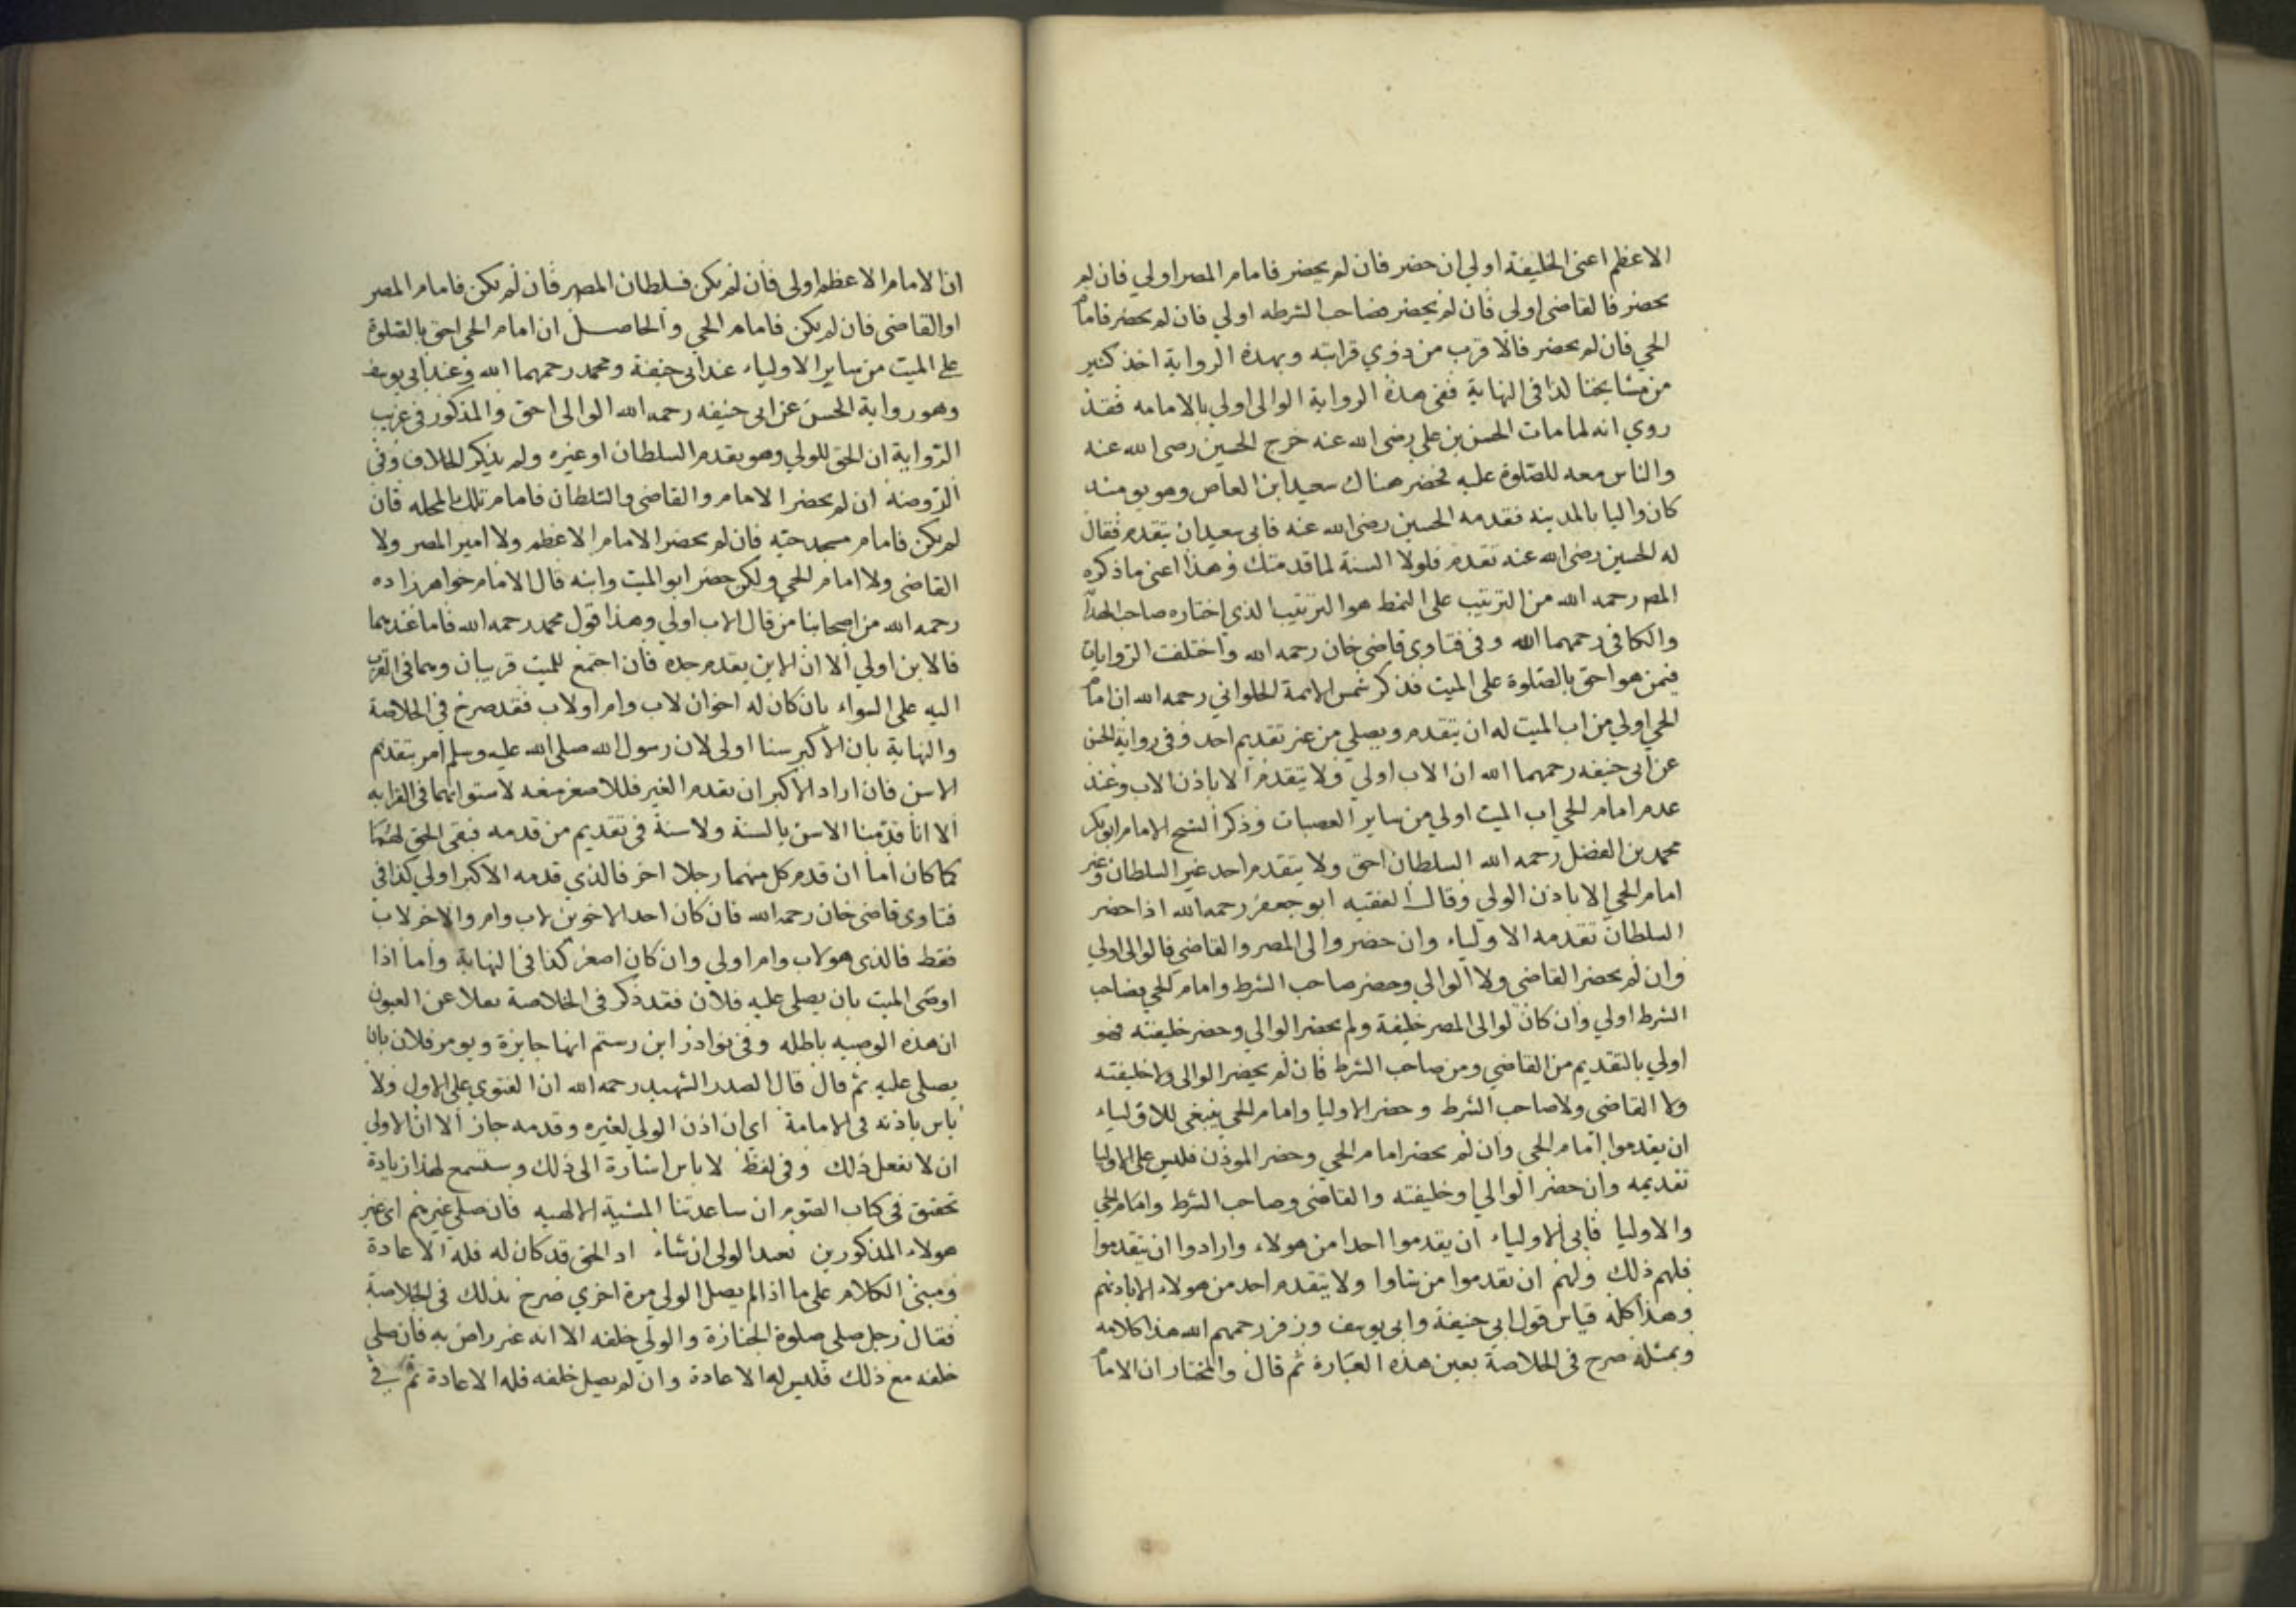 الاعظم اعنى الخليفة اولي ان حضر فان لم يحضر فامام المصر اولي فان لم
يحضر فالقاضى اولى فان لم يحضر فصاحب الشرطه اولي فان لم يحضر فامام
الحي فان لم يحضر فالاقرب من ذوي قرابته وبهذه الرواية اخذ كثير
من مشايخنا كذا فى النهاية ففى هذه الرواية الوالى اولي بالامامه فقد
روي انه لما مات الحسن بن علي رضى الله عنه خرج الحسين رضى الله عنه
والناس معه للصلوة عليه فحضر هناك سعيد ابن العاص وهو يومئذ
كان واليا بالمدينه فقدمه الحسين رضى الله عنه فابى سعيد ان يتقدم فقال
له الحسين رضى الله عنه تقدم فلولا السنة لما قدمتك وهذا اعنى ما ذكره
المص رحمه الله من الترتيب على النمط هو الترتيب الذي اختاره صاحب الهداية
والكافى رحمهما الله وفى فتاوى قاضى خان رحمه الله واختلفت الروايات
فيمن هو احق بالصلوة على الميت فذكر شمس الايمة الحلوانى رحمه الله ان امام
الحي اولي من اب الميت له ان يتقدم ويصلي من غير تقديم احد وفى رواية الحسن
عن ابى حنيفه رحمهما الله ان الاب اولي ولا يتقدم الا باذن الاب وعند
عدم امام الحي اب الميت اولي من ساير العصبات وذكر الشيخ الامام ابو بكر
محمد بن الفضل رحمه الله السلطان احق ولا يتقدم احد غير السلطان وغير
امام الحي الا باذن الولي وقال الفقيه ابو جعفر رحمه الله اذا حضر
السلطان تقدمه الاولياء وان حضر والى المصر والقاضي فالوالى اولي
وان لم يحضر القاضى ولا الوالي وحضر صاحب الشرط وامام الحي فصاحب
الشرط اولي وان كان لوالى المصر خليفة ولم يحضر الوالي وحضر خليفته فهو
اولي بالتقديم من القاضي ومن صاحب الشرط فان لم يحضر الوالى ولا خليفته
ولا القاضى ولا صاحب الشرط وحضر الاوليا وامام الحي ينبغى للاولياء
ان يقدموا امام الحي وان لم يحضر امام الحي وحضر الموذن فليس على الاوليا
تقديمه وان حضر الوالي او خليفته والقاضى وصاحب الشرط وامام الحي
والاوليا فابى الاولياء ان يقدموا احدا من هولاء وارادوا ان يتقدموا
فلهم ذلك ولهم ان يقدموا من شاوا ولا يتقدم احد من هولاء الا باذنهم
وهذا كله قياس قول ابى حنيفة وابى يوسف وزفر رحمهم الله هذا كلامه
وبمثله صرح فى الخلاصة بعين هذه العبارة ثم قال والمختار ان الامام
ان الامام الاعظم اولى فان لم يكن فسلطان المصر فان لم يكن فامام المصر
او القاضى فان لم يكن فامام الحي والحاصل ان امام الحى احق بالصلوة
على الميت من ساير الاولياء عند ابى حنيفة ومحمد رحمهما الله وعند ابى يوسف
وهو رواية الحسن عن ابى حنيفه رحمه الله الوالى احق والمذكور فى غريب
الرواية ان الحق للولي وهو يقدم السلطان او غيره ولم يذكر الخلاف وفى
الروضة ان لم يحضر الامام والقاضى والسلطان فامام تلك المحله فان
لم يكن فامام مسجد حيه فان لم يحضر الامام الاعظم ولا امير المصر ولا
القاضى ولا امام الحي ولكن حضر ابو الميت وابنه قال الامام خواهر زاده
رحمه الله من اصحابنا من قال الاب اولي وهذا قول محمد رحمه الله فاما عندهما
فالابن اولي الا ان الابن يقدم جده فان اجتمع للميت قريبان وهما فى القرب
اليه على السواء بان كان له اخوان لاب وام او لاب فقد صرح فى الخلاصة
والنهاية بان الاكبر سنا اولى لان رسول الله صلى الله عليه وسلم امر بتقديم
الاسن فان اراد الاكبر ان يقدم الغير فللاصغر منعه لاستوائهما فى القرابه
الا انا قدمنا الاسن بالسنة ولا سنة فى تقديم من قدمه فبقى الحق لهما
كما كان اما ان قدم كل منهما رجلا اخر فالذي قدمه الاكبر اولي كذا فى
فتاوى قاضى خان رحمه الله فان كان احد الاخوين لاب وام والاخر لاب
فقط فالذى هو لاب وام اولي وان كان اصغر كذا فى النهاية واما اذا
اوصى الميت بان يصلى عليه فلان فقد ذكر فى الخلاصة نقلا عن العيون
ان هذه الوصيه باطله وفى نوادر ابن رستم انها جايزة ويومر فلان بان
يصلى عليه ثم قال قال الصدر الشهيد رحمه الله ان الفتوي على الاول ولا
باس باذنه فى الامامة اى ان اذن الولي لغيره وقدمه جاز الا ان الاولى
ان لا يفعل ذلك وفى لفظ لا باس اشارة الى ذلك وستسمع لهذا زيادة
تحقيق فى كتاب الصوم ان ساعدتنا المشية الالهيه فان صلى غيرهم اى غير
هولاء المذكورين يعيد الولى ان شاء اذ الحق قد كان له فله الاعادة
ومبنى الكلام على ما اذا لم يصل الولى مرة اخري صرح بذلك فى الخلاصة
فقال رجل صلى صلوة الجنازة والولي خلفه الا انه غير راض به فان صلى
خلفه مع ذلك فليس له الاعادة وان لم يصل خلفه فله الاعادة ثم فى